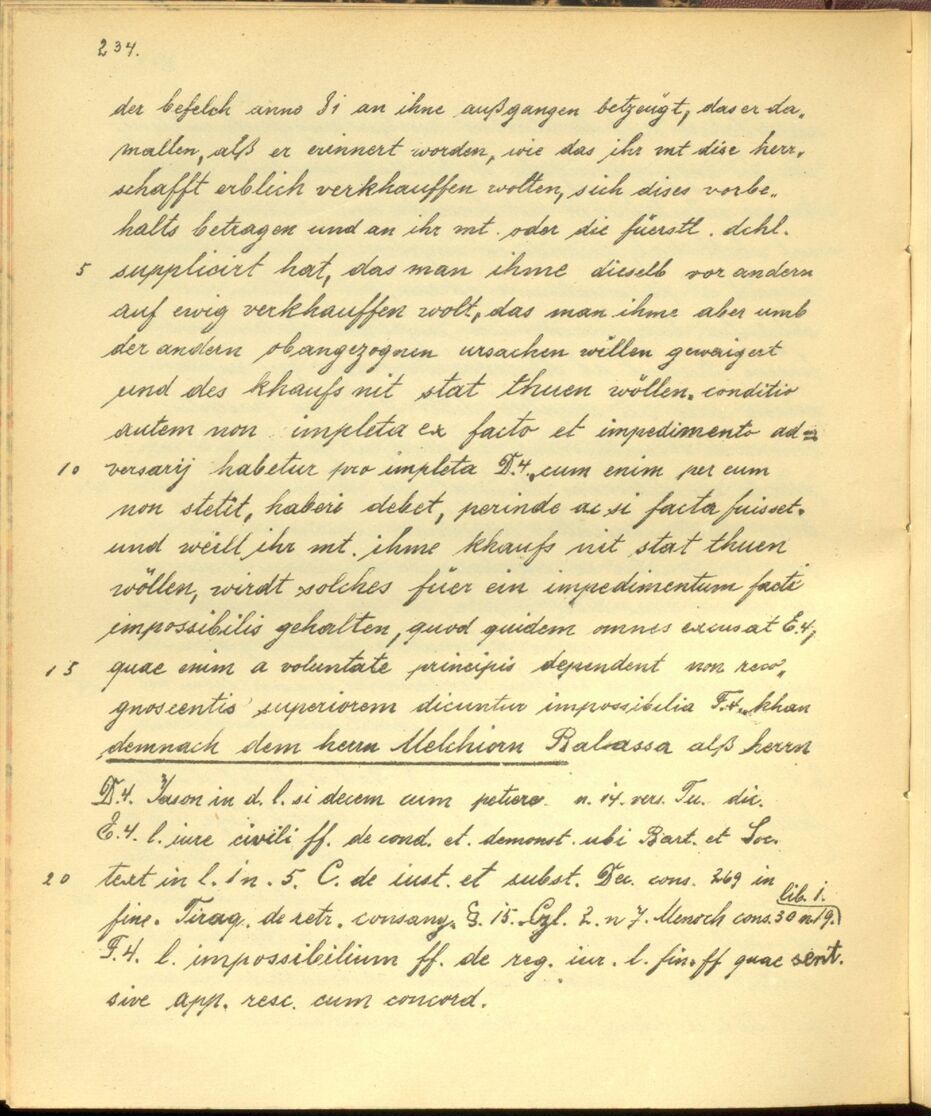 234.
der befelch anno 81 an ihne außgangen betzeügt, das er da„
mallen, alß er erinnert worden, wie das ihr mt dise herr„
schafft erblich verkhauffen wolten, sich dises vorbe„
halts betragen und an ihr mt. oder die füerstl. dchl.
5 supplicirt hat, das man ihme dieselb vor andern
auf ewig verkhauffen wolt, das man ihme aber umb
der andern obangezognen ursachen willen geweigert
und des khaufs nit stat thuen wöllen. conditio
autem non impleta ex facto et impedimento ad=
10 versarij habetur pro impleta D.4. cum enim per eum
non stetit, haberi debet, perinde ac si facta fuisset.
und weill ihr mt. ihme khaufs nit stat thuen
wöllen, wirdt solches füer ein impedimentum facti
impossibilis gehalten, quod quidem omnes excusat E.4,
15 quae enim a voluntate principis dependent non reco„
gnoscentis superiorem dicuntur impossibilia F.4. khan
demnach dem herrn Melchiorn Balassa alß herrn
D.4. Jason in d. l. si decem cum petiere. n. 14. vers. Tu. dic.
E.4. l. iure civili ff. de cond. et. demonst. ubi Bart. et Soc.
20 text in l. 1 n. 5. C. de iust. et subst. Dec. cons. 269 in
fine. Tiraq. de retr. consang. §. 15. Lgl. 2. n 7. Menoch cons. 30 n 19. lib. 1.
F.4. l. impossibilium ff. de reg. iur. l. fin. ff quae sent.
sive app. resc. cum concord.